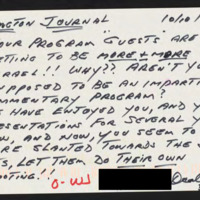 NGTON JOURNAL 10/10/
OUR PROGRAM "GUESTS" ARE
TTING TO BE MORE + MORE
RAEL!! WHY?? AREN'T Y
UPPOSED TO BE AN IMPART
MMENTARY PROGRAM?
S HAVE ENJOYED YOU, AND Y
RESENTATIONS FOR SEVERAL Y
W, AND NOW, YOU SEEM TO
ARE SLANTED TOWARDS THE
S, LET THEM DO THEIR OWN
OOTING!!